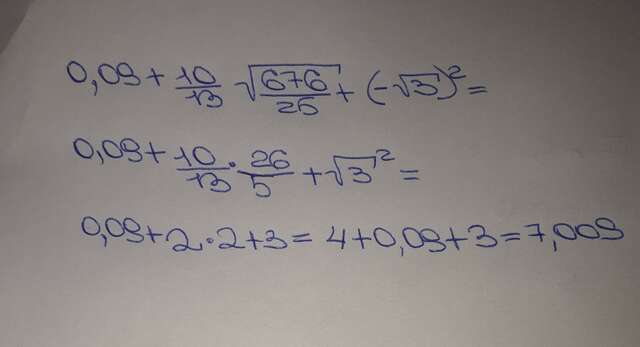 0,09 + 10/13 √(676/25) + (-√3)² =
0,09 + 10/13 · 26/5 + √3² =
0,09 + 2 · 2 + 3 = 4 + 0,09 + 3 = 7,009